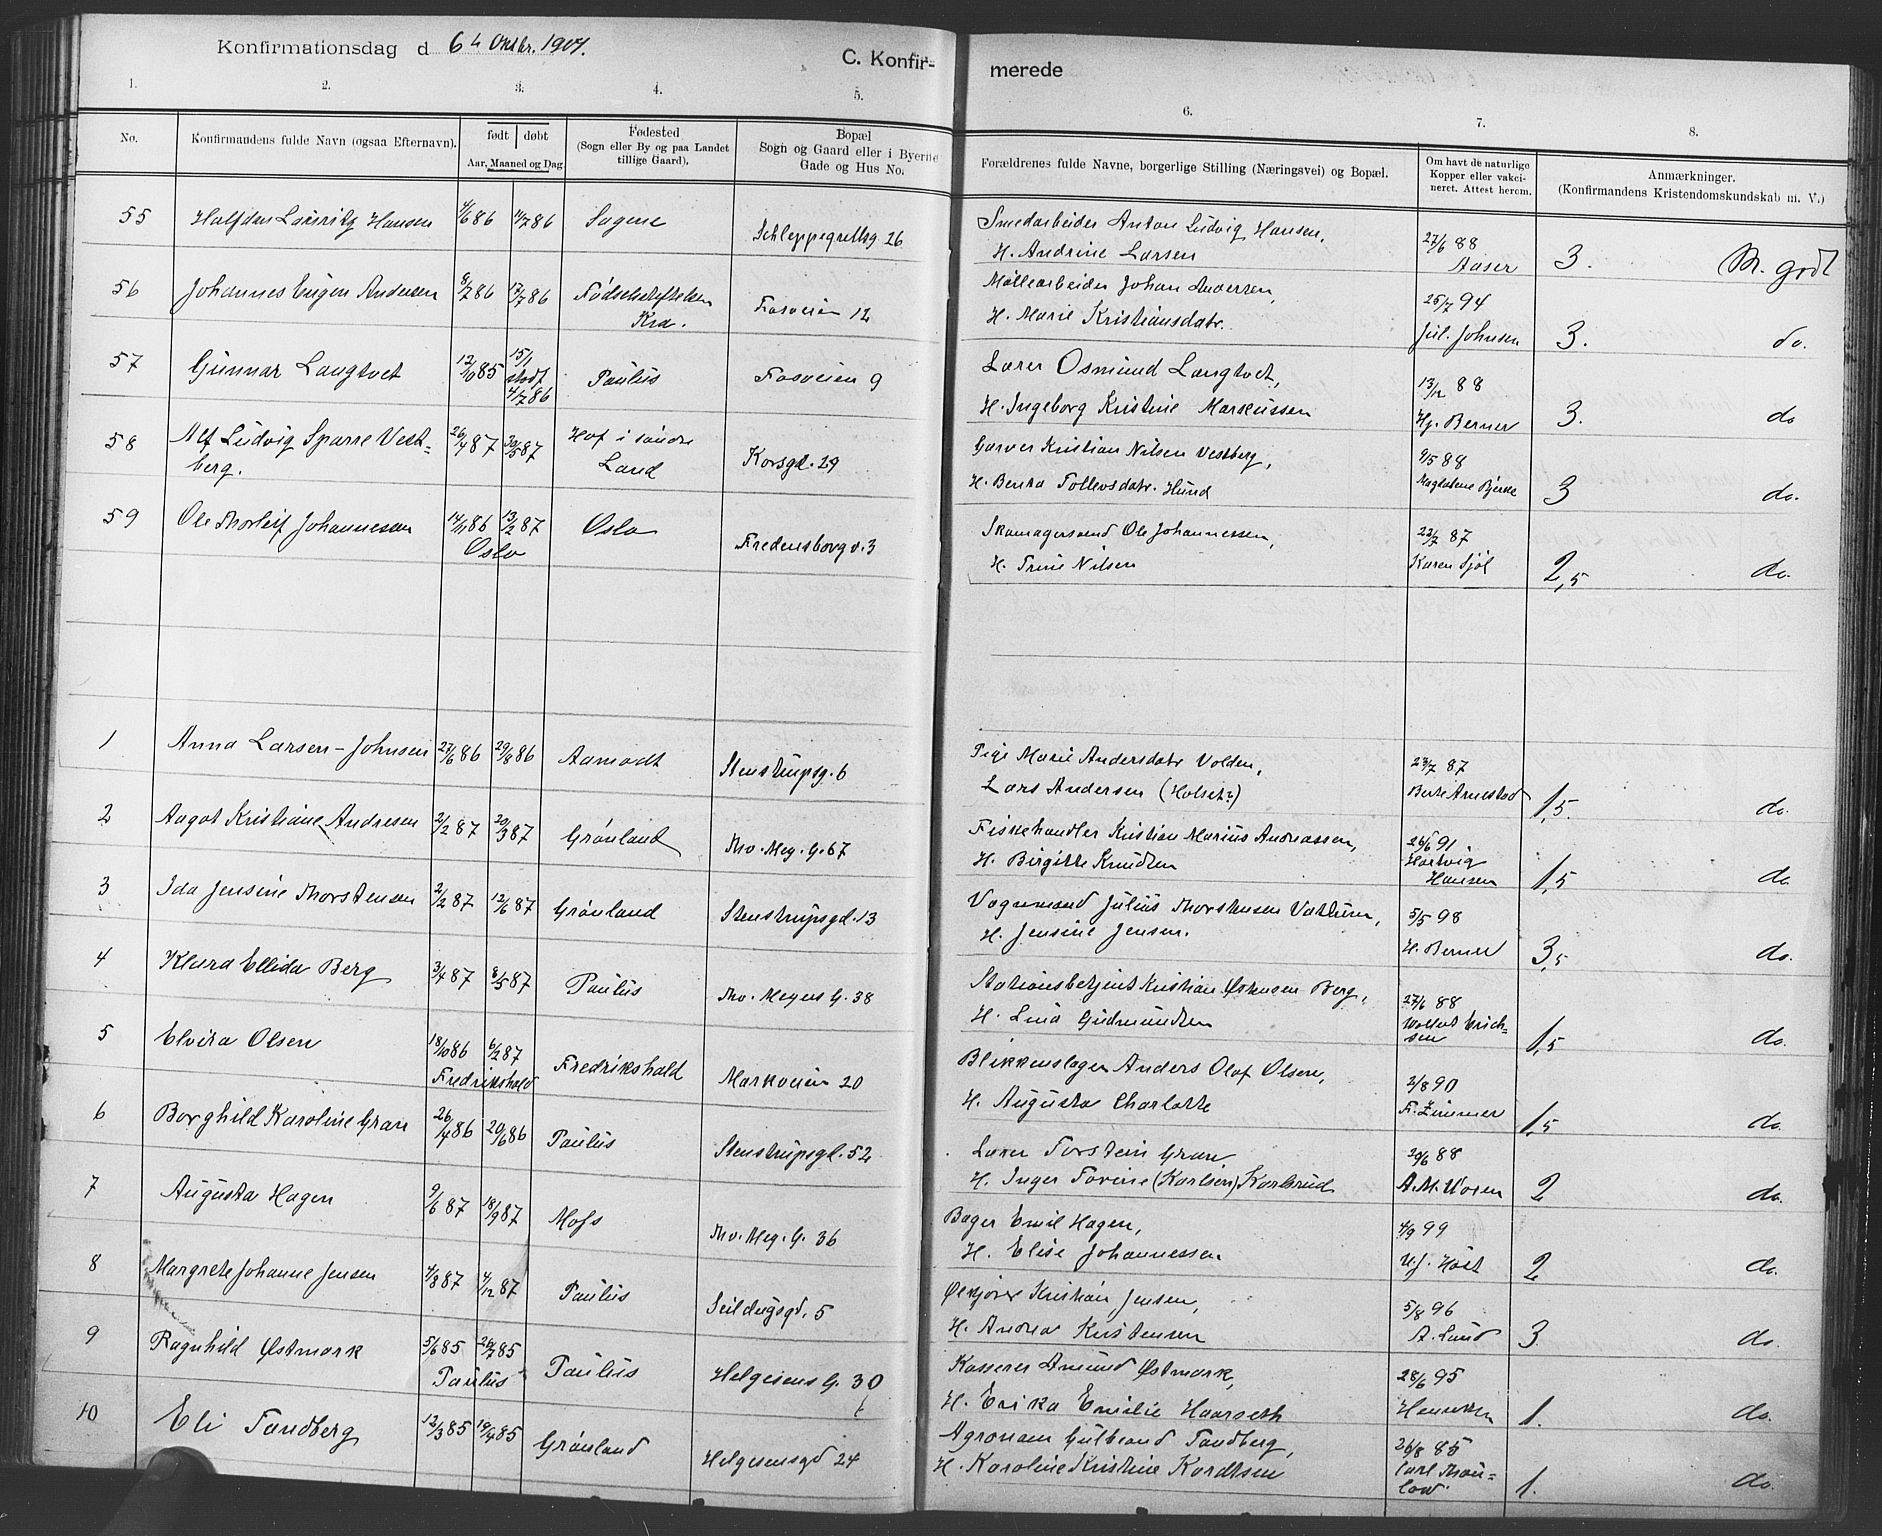 Konfirmationsdag d 6 Oktbr. 1901.
C. Konfir- merede
1. 2. 3. 4. 5. 6. 7. 8.
No.
Konfirmandens fulde Navn (ogsaa Efternavn).
født | døbt
Aar, Maaned og Dag
Fødested
(Sogn eller By og paa Landet
tillige Gaard).
Bopæl
Sogn og Gaard eller i Byerne
Gade og Hus No.
Forældrenes fulde Navne, borgerlige Stilling (Næringsvei) og Bopæl.
Om havt de naturlige
Kopper eller vakci-
neret. Attest herom.
Anmærkninger.
(Konfirmandens Kristendomskundskab m. V.)
55 Halfdan Lauritz Hansen 4/6 86 11/7 86 Sagene Schleppegrellsg 26
Smedarbeider Anton Ludvig Hansen,
H. Andrine Larsen 27/6 88 Aaser 3. M. godt
56 Johannes Eugen Andersen 8/2 86 17/7 86 Fødselsstiftelsen Kra. Fosveien 12
Møllearbeider Johan Andersen,
H. Marie Kristiansdatr. 25/7 94 Jul. Johnsen 3. do.
57 Gunnar Langtvet 12/10 85 15/1 stadf 4/7 86 Paulus Fosveien 9
Lærer Osmund Langtvet,
H. Ingeborg Kristine Markussen 13/12 88 Hj. Berner 3. do
58 Alf Ludvig Sparre Vest-
berg. 26/4 87 30/5 87 Hof i søndre Land Korsgd. 29
Garver Kristian Nilsen Vestberg,
H. Bertha Tollevsdatr. Hund 9/5 88 Magdalene Bjerke 3 do.
59 Ole Thorleif Johannessen 14/11 86 13/2 87 Oslo Oslo Fredensborgv. 3
Skomagersvend Ole Johannessen,
H. Trine Nilsen 22/7 87 Karen Sjøl 2,5 do.
1 Anna Larsen-Johnsen 27/6 86 29/8 86 Aamodt Stenstrupsg. 6
Pige Marie Andersdatr Volden,
Lars Andersen (Holset?) 23/7 87 Berte Arnestad 1,5. do.
2 Aagot Kristiane Andresen 2/2 87 20/3 87 Grønland Thv. Mey. G. 67
Fiskehandler Kristian Marius Andreassen,
H. Birgitte Knudsen 26/6 91 Hartvig Hansen 1,5 do.
3 Ida Jensine Thorstensen 2/2 87 12/6 87 Grønland Stenstrupsgd. 13
Vognmand Julius Thorstensen Vatturn,
H. Jensine Jensen. 5/5 98 H. Berner 3,5 do.
4 Klara Ellida Berg 3/4 87 8/5 87 Paulus Thv. Meyers G. 38
Stationsbetjent Kristian Berg,
H. Lina Gudmundsen 27/6 88 Erich-
sen 1,5 do.
5 Elvira Olsen 18/10 86 6/2 87 Fredrikshald Fredrikshald Markveien 20
Blikkenslager Anders Olaf Olsen,
H. Augusta Charlotte 2/8 90 F. Zimmer 1,5 do.
6 Borghild Karoline Gran 26/4 86 20/6 86 Paulus Stenstrupsgd. 52
Lærer Torstein Gran
H. Inger Torine (Karlsen) Karlsrud 29/6 88 A. M. Uoren 2 do.
7 Augusta Hagen 9/6 87 18/9 87 Moss Thv. Mey. G. 36
Bager Emil Hagen,
H. Elise Johannessen 4/9 99 U. J. Høst 2 do.
8 Margrete Johanne Jensen 4/8 87 4/12 87 Paulus Seildugsgd. 5
Ølkjører Kristian Jensen,
H. Andrea Kristensen 5/8 96 A. Lund 3 do.
9 Ragnhild Østmork 5/6 85 26/7 85 Paulus Paulus Helgesens G. 30
Kasserer Amund Østmork,
H. Erika Emilie Haarseth 28/6 95 Henriksen 1. do.
10 Eli Tandberg 12/3 85 19/4 85 Grønland Helgesensgd 24
Agronom Gulbrand Tandberg,
H. Karoline Kristine Kordtsen 26/8 85 Carl Thau-
low 1. do.